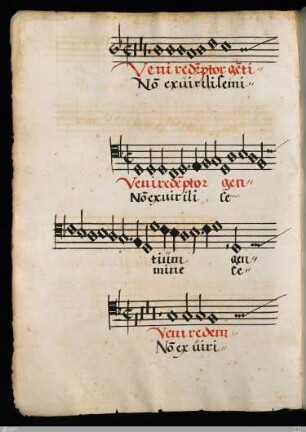 Veni redēptor gēti
Nō ex uirili semi
Veni redēptor gen
Nō ex uirili se
tium gen
mine se
Veni redem
Nō ex uiri